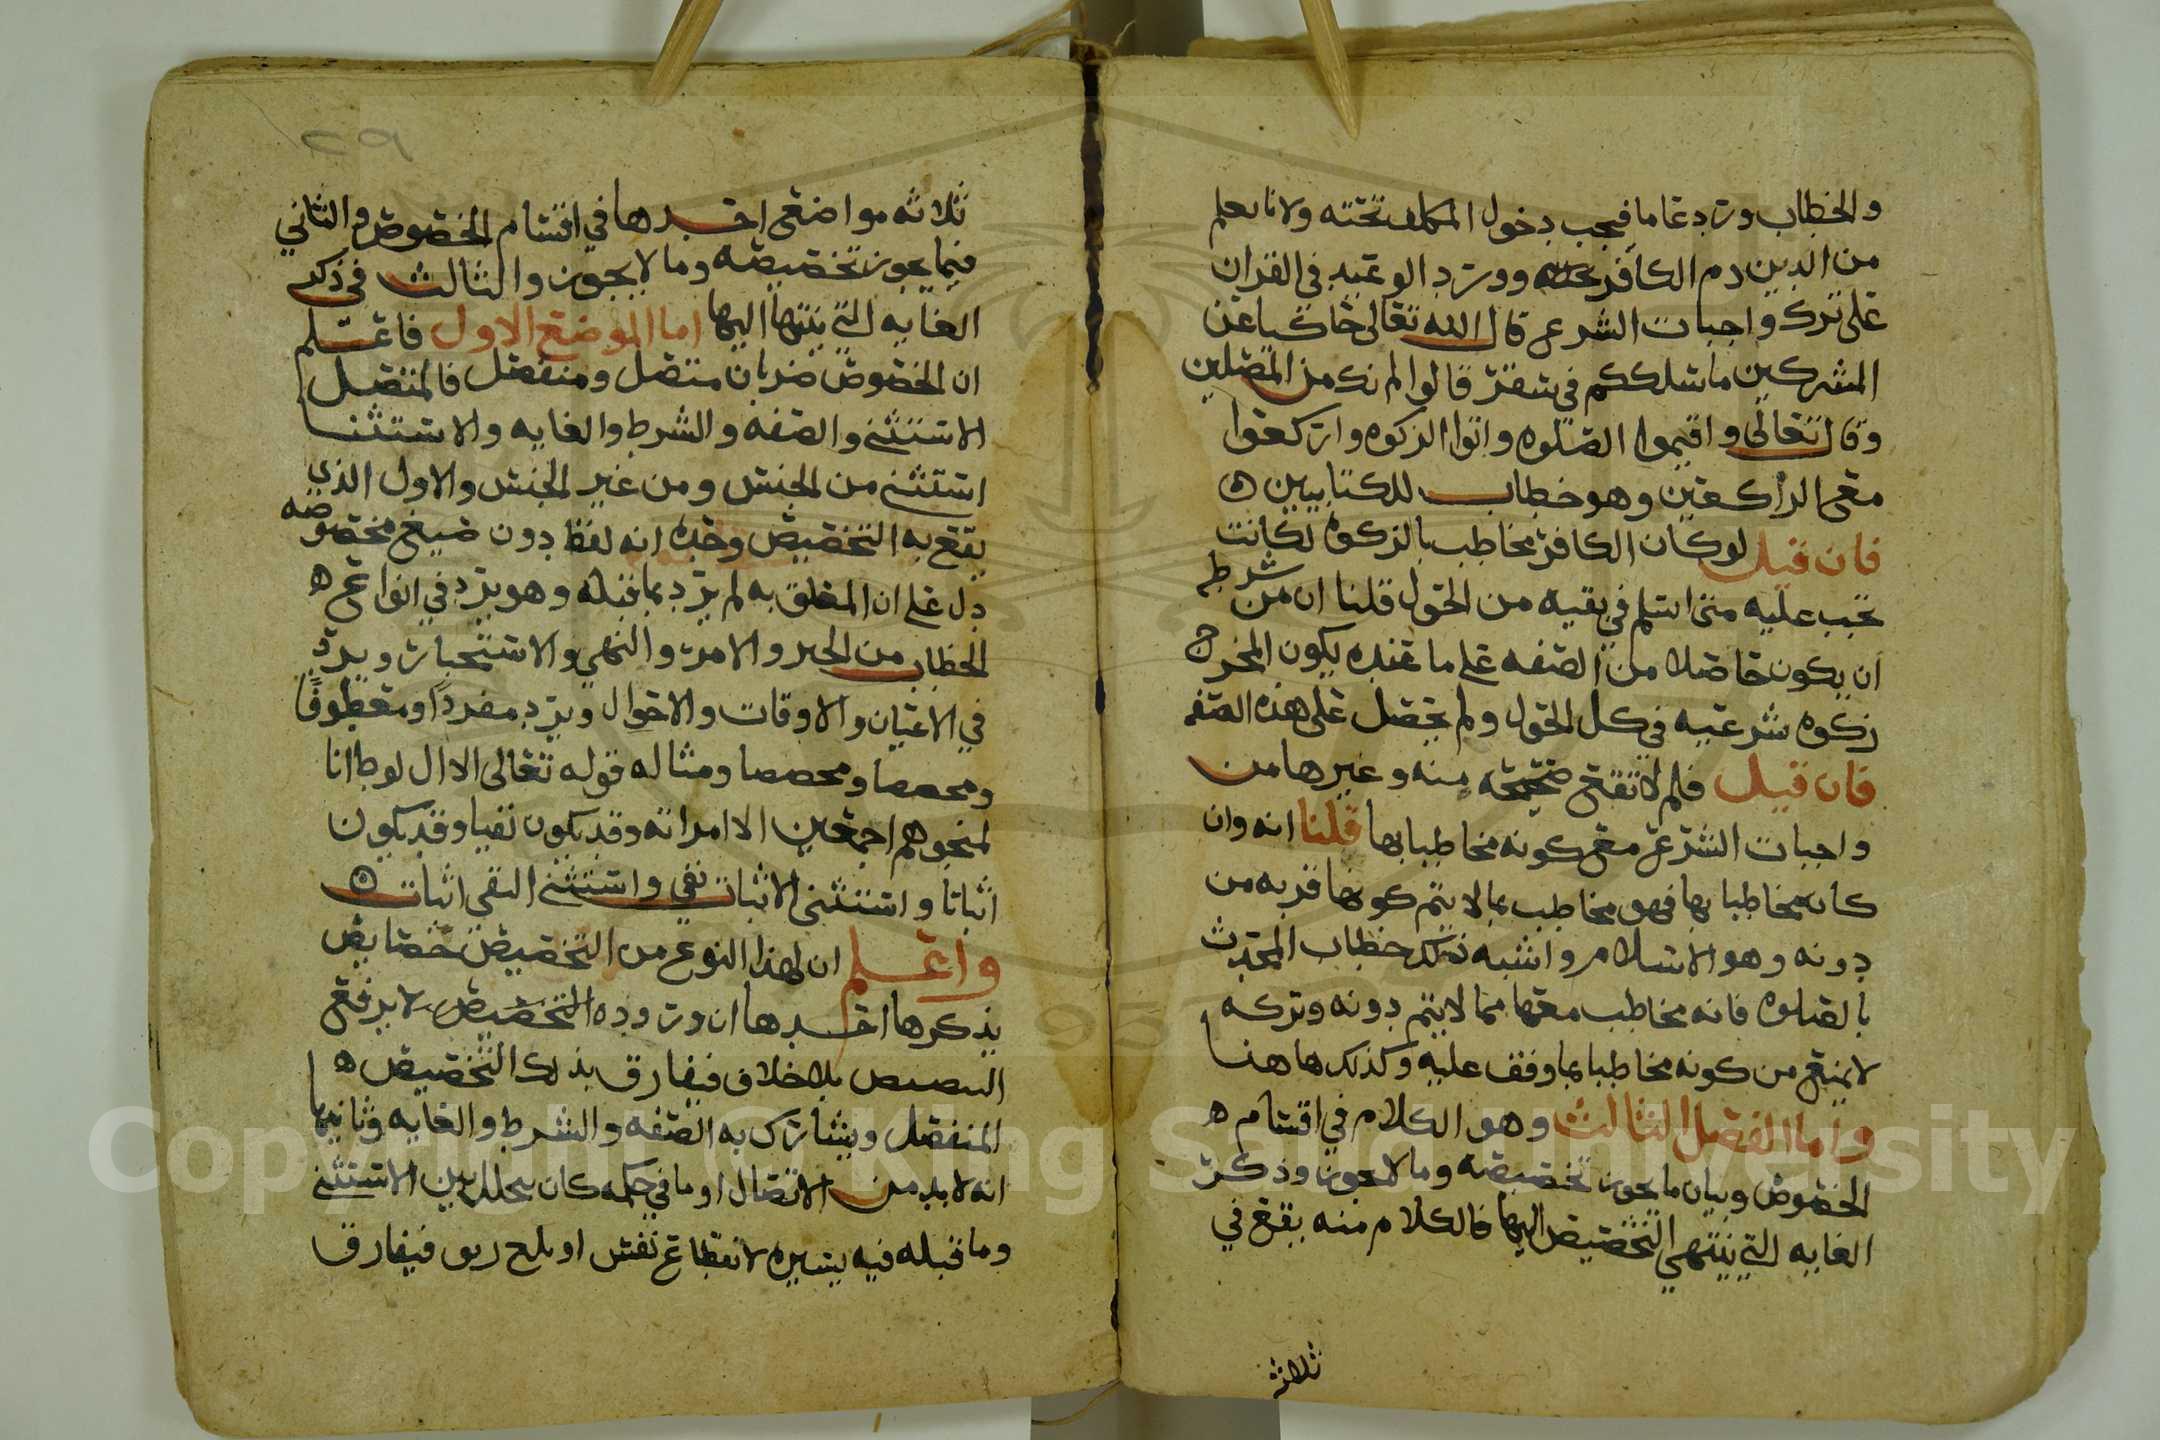 والخطاب ورد عاما فيجب دخول المكلف تحته ولانا نعلم
من الدين ذم الكافر عليه وورد الوعيد في القران
على ترك واجبات الشرع قال الله تعالى حاكيا عن
المشركين ما سلككم في سقر قالوا لم نك من المصلين
وقال تعالى واقيموا الصلوه واتوا الزكوه واركعوا
مع الراكعين وهو خطاب للكتابيين ه
فان قيل لو كان الكافر مخاطب بالزكوه لكانت
تجب عليه متى اسلم في بقيه من الحول قلنا ان من شرطه
ان يكون حاصلا من الصفه على ما عنده يكون المخرج
زكوه شرعيه في كل الحول ولم يحصل على هذه الصفه
فان قيل فلم لا تقع صحيحه منه وغيرها من
واجبات الشرع مع كونه مخاطبا بها قلنا انه وان
كان مخاطبا بها فهو مخاطب بما لا يتم كونها قربه من
دونه وهو الاسلام واشبه ذلك خطاب المحدث
بالصلوه فانه مخاطب معها بما لا يتم دونه وتركه
لا يمنع من كونه مخاطبا بما وقف عليه وكذلك هاهنا
واما الفصل الثالث وهو الكلام في اقسام ه
الخصوص وبيان ما يجوز تخصيصه وما لا يجوز وذكر
الغايه التي ينتهي التخصيص اليها فالكلام منه يقع في
ثلاثه
٢٩
ثلاثه مواضع احدها في اقسام الخصوص والثاني
فيما يجوز تخصيصه وما لا يجوز والثالث في ذكر
الغايه التي ينتها اليها اما الموضع الاول فاعلم
ان الخصوص ضربان متصل ومنفصل فالمتصل
الاستثنى والصفه والشرط والغايه والاستثنا
استثنى من الجنس ومن غير الجنس والاول الذي
يقع به التخصيص وحده انه لفظ دون صيغ مخصوصه
دل على ان المعلق به لم يرد بما قبله وهو يرد في انواع ه
الخطاب من الخبر والامر والنهي والاستخبار ويرد
في الاعيان والاوقات والاحوال ويرد مفردا ومعطوفا
ومخصصا ومخصصا ومثاله قوله تعالى الا ال لوط انا
لمنجوهم اجمعين الا امراته وقد يكون نفيا وقد يكون
اثباتا واستثنى الاثبات نفي واستثنى النفي اثبات ه
واعلم ان لهذا النوع من التخصيص خصايص
يذكرها احدها ان وروده التخصيص لا يرفع
التنصيص بلا خلاف فيفارق بذلك التخصيص ه
المنفصل ويشارك به الصفه والشرط والغايه وثانيها
انه لا بد من الاتصال او ما في حكمه كان يتخلل بين الاستثنى
وما قبله فيه يسيره لانقطاع نفس او بلع ريق فيفارق